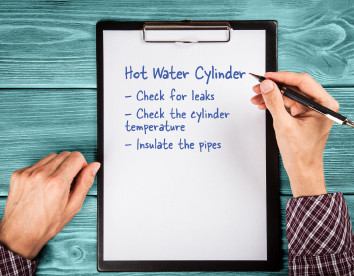 Hot Water Cylinder
- Check for leaks
- Check the cylinder
temperature
- Insulate the pipes